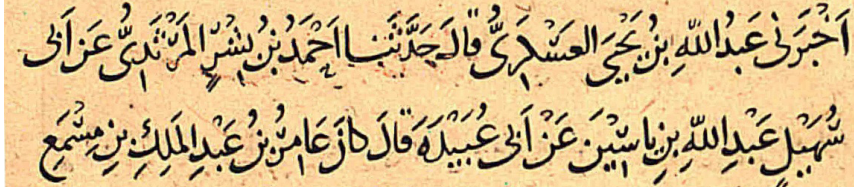 اَخْبَرَنِي عَبْدُ اللّٰهِ بْنُ يَحْيَى العَسْكَرِيُّ قَالَ حَدَّثَنَا اَحْمَدُ بْنُ بِشْرٍ المَرْثَدِيُّ عَنْ اَبِي
سُهَيْلٍ عَبْدِ اللّٰهِ بْنِ يَاسِيْنَ عَنْ اَبِي عُبَيْدَةَ قَالَ كَانَ عَامِرُ بْنُ عَبْدِ المَلِكِ بْنِ مِسْمَعٍ